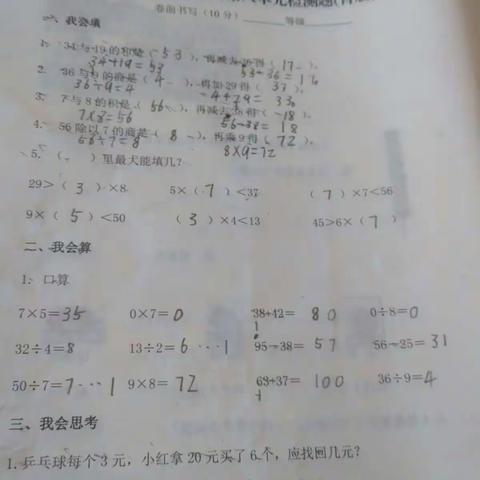 元检测题
卷面书写(10分) 等级
一、我会填
1. 34与19的和是(53),再减去36得(17)。
34+19=53 53-36=17
2. 36与9的商是(4),再加29得(33)。
36÷9=4 4+29=33
3. 7与8的积是(56),再减去38得(18)。
7×8=56 56-38=18
4. 56除以7的商是(8),再乘9得(72)。
56÷7=8 8×9=72
5. ( )里最大能填几?
29>(3)×8 5×(7)<37 (7)×7<56
9×(5)<50 (3)×4<13 45>6×(7)
二、我会算
1. 口算
7×5=35 0×7=0 38+42=80 0÷8=0
32÷4=8 13÷2=6…1 95-38=57 56-25=31
50÷7=7…1 9×8=72 63+37=100 36÷9=4
三、我会思考
1.乒乓球每个3元,小红拿20元买了6个,应找回几元?